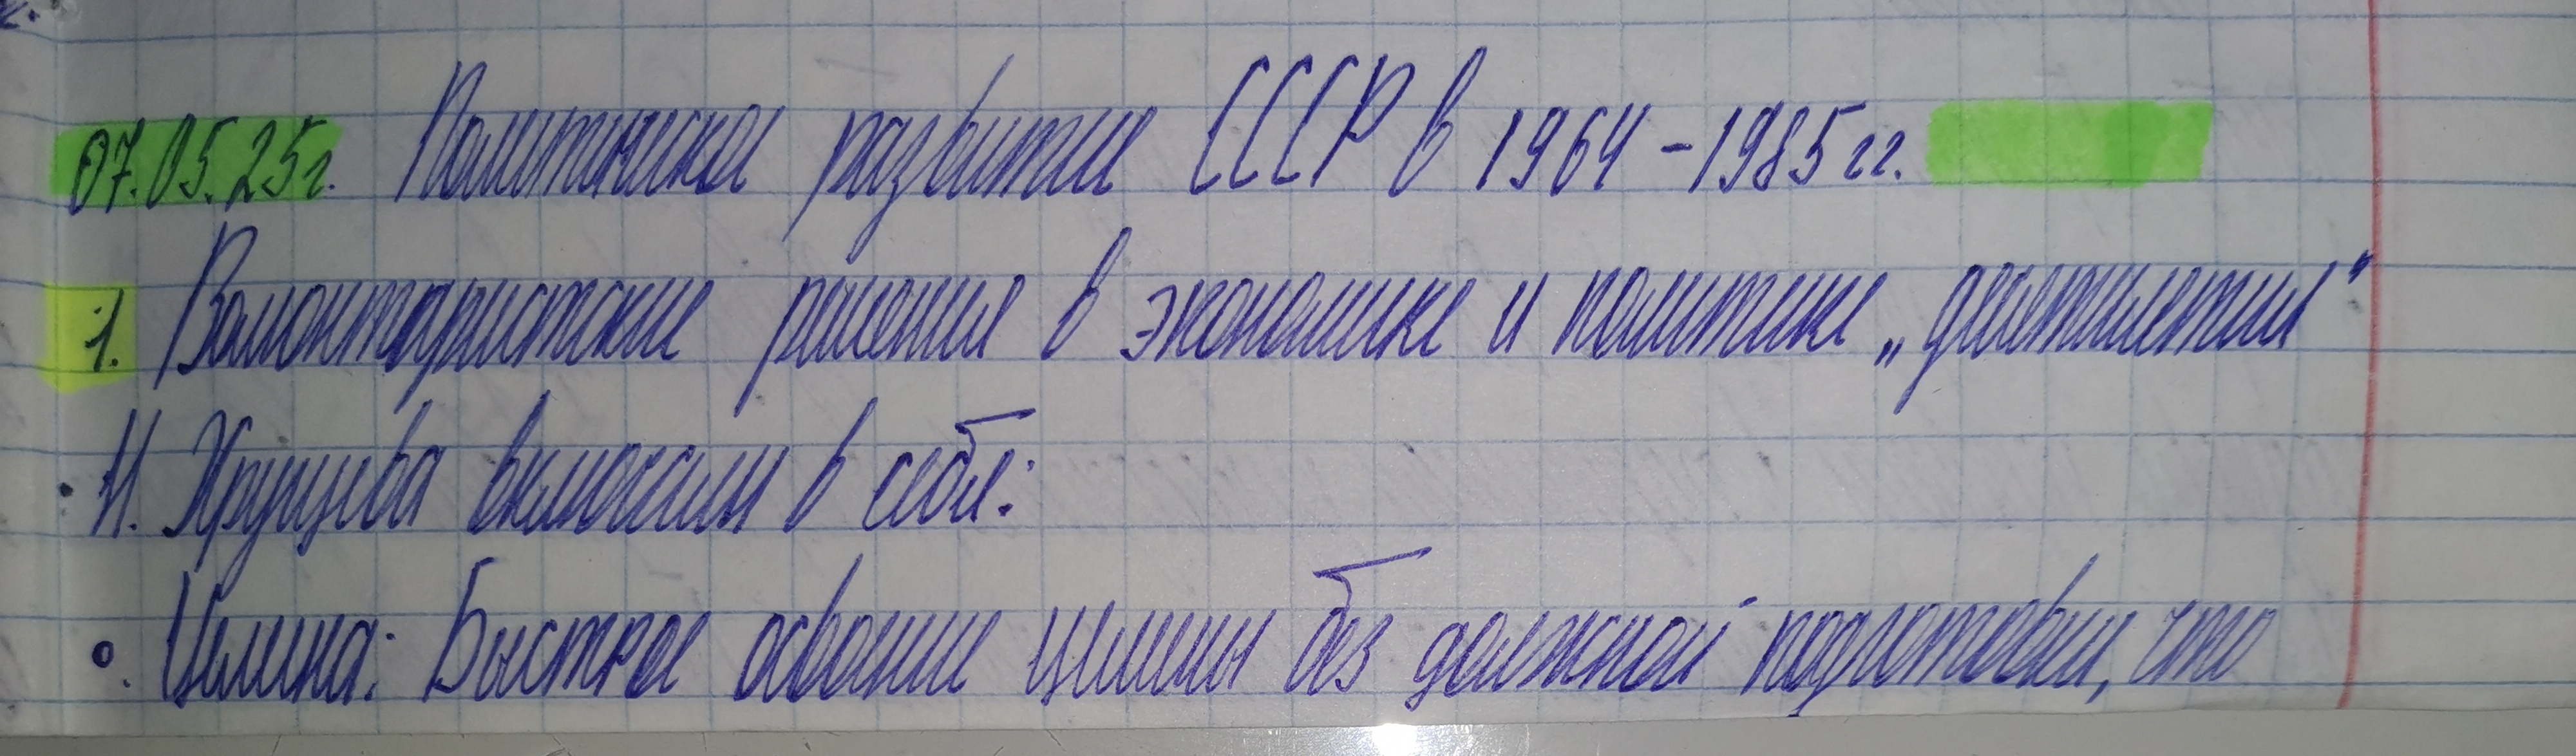 07.05.25г. Политическое развитие СССР в 1964-1985 гг.
1. Волюнтаристские решения в экономике и политике „десятилетия"
Н. Хрущева включали в себя:
Целина: Быстрое освоение целины без должной подготовки, что